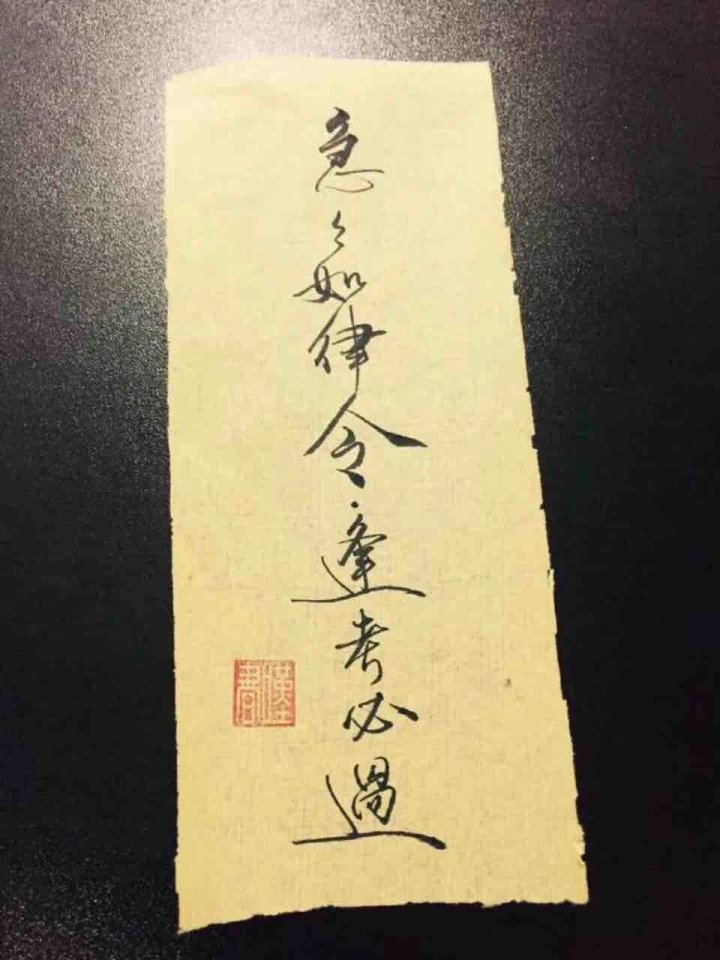 急々如律令逢考必過